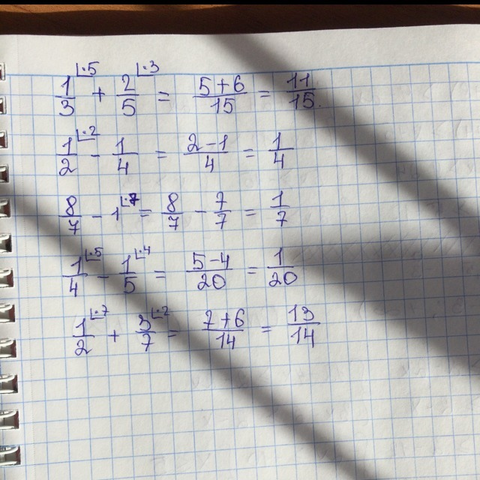 1/3 ⌊·5 + 2/5 ⌊·3 = 5+6/15 = 11/15
1/2 ⌊·2 - 1/4 = 2-1/4 = 1/4
8/7 - 1 ⌊·7 = 8/7 - 7/7 = 1/7
1/4 ⌊·5 - 1/5 ⌊·4 = 5-4/20 = 1/20
1/2 ⌊·7 + 3/7 ⌊·2 = 7+6/14 = 13/14